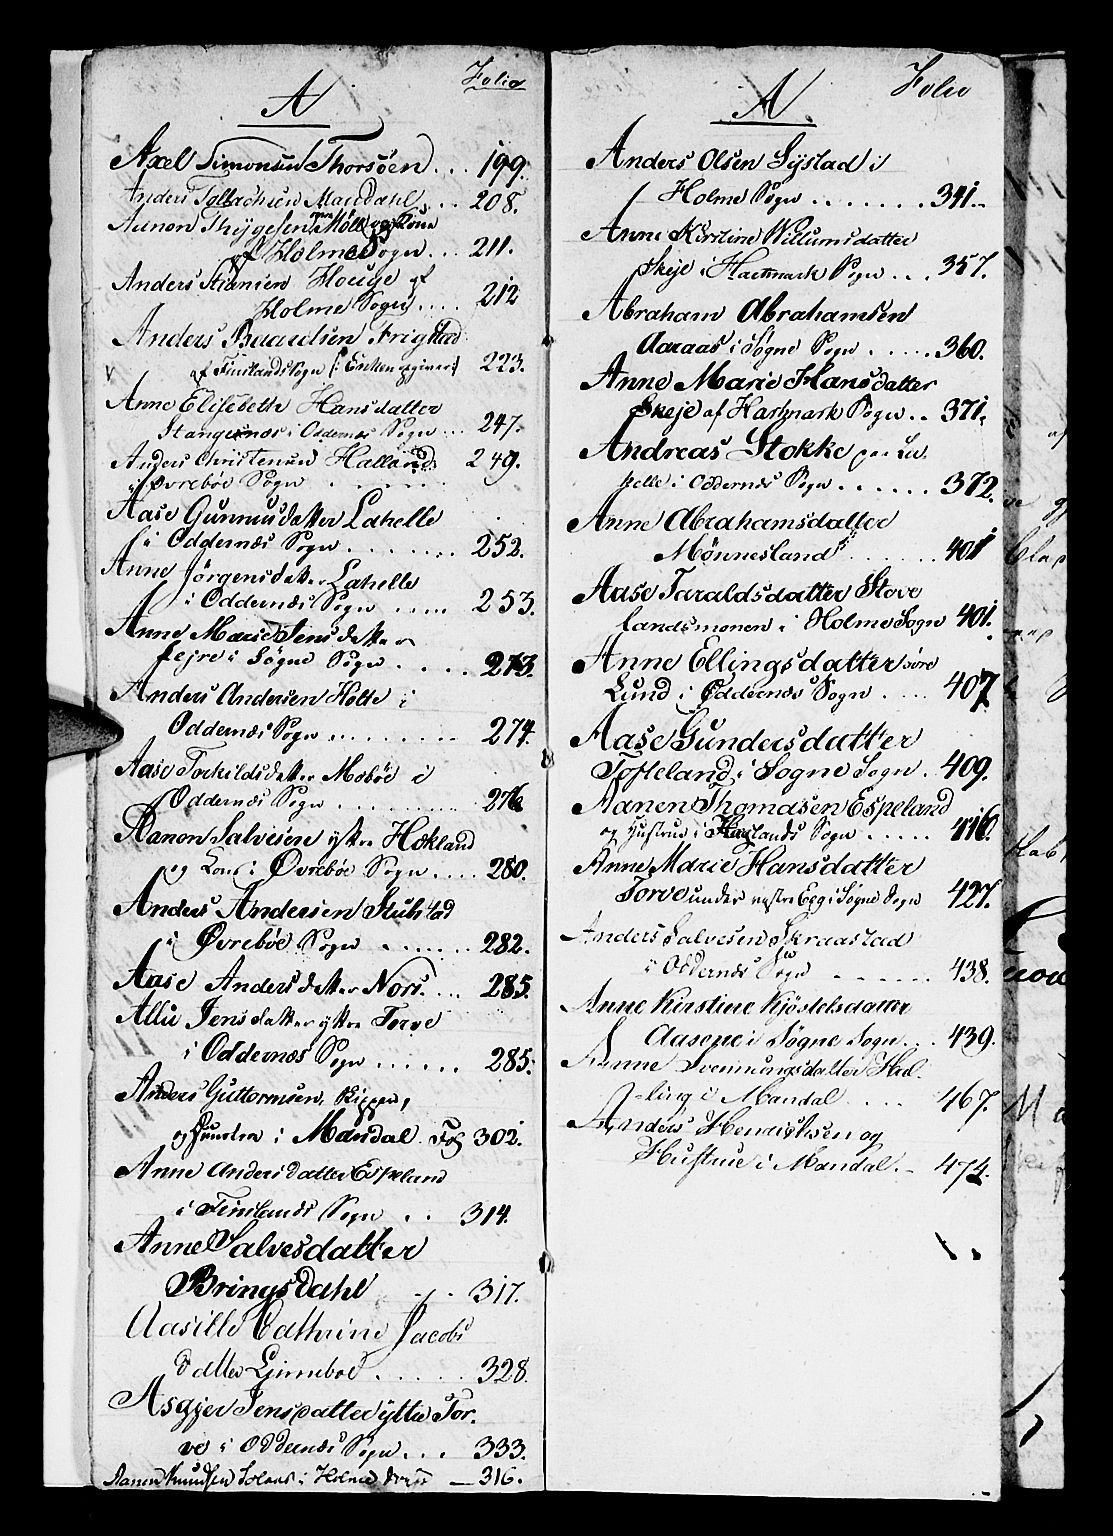 A
Folio
Axel Simonsen Thorsöen . . . 199.
Anders Mandahl . . . 208.
Aanon Thÿgesen Möll og Kone
af Holme Sogn . . . 211.
Anders Houge af
Holme Sogn . . . . 212
Anders Frigstad
af Finslands Sogn 223.
Anne Elisebeth Hansdatter
Stangenæs i Oddernæs Sogn . . . 247.
Anders Christensen Halland 249.
i Övreböe Sogn . . . . .
Aase Gunnusdatter Lahelle
i Oddernæs Sogn . . . . . . . 252.
Anne Jörgensdatter Lahelle
i Oddernæs Sogn . . . . . 253.
Anne Marie Jensdatter
i Sögne Sogn . . . . . 273.
Anders Andersen Holte i
Oddernæs Sogn . . . . . . . . . . 274.
Aase Torkildsdatter Moböe i
Oddernæs Sogn . . . . . . . . . 276
Aanon Salvesen ÿttre Hokland
og Kone i Övreböe Sogn . . . . 280.
Anders Andersen Stubstad
i Øvreböe Sogn . . . . . . . 282.
Aase Andersdatter Nors. . . . 285.
Jensdatter ÿttre Torve
i Oddernæs Sogn . . . . . . 285.
Anders Guttormsen,
og Hustru i Mandal Fol 302.
Anne Andersdatter Espeland
i Finslands Sogn . . 314.
Anne Salvesdatter
Bringsdahl . . . 317.
Aasille Cathrine Jacobs
datter . . . . . . 328.
Asgjer Jensdatter ÿtte Tor.
ve i Oddernæs Sogn . . . 333.
Aanon Knudsen i Holme Sogn — 316.
A
Folio
Anders Olsen Sÿstad i
Holme Sogn . . . . . . . 341.
Anne Kirstine Willumsdatter
Skeje i Hartmark Sogn . . . 357.
Abraham Abrahamsen
Aaraas i Søgne Sogn . . . . . 360.
Anne Marie Hansdatter
Skeje af Hartmark Sogn . . 371.
Andreas Stokke paa La
helle i Oddernæs Sogn . . . . . . 372.
Anne Abrahamsdatter
Mönnesland . . . . . 401
Aase Taraldsdatter Stove
landsmonen i Holme Sogn 401.
Anne Ellingsdatter söre
Lund i Oddernæs Sogn . . . . 407
Aase Gundersdatter
Tofteland i Sogne Sogn . 409.
Aanen Thomasen Espeland
og Hustrue i Sogn . . . . . 416.
Anne Marie Hansdatter
Torve under i Sögne Sogn 427.
Anders Salvesen Skraastad
i Oddernæs Sogn . . . . . . . 438.
Anne Kirstine Kjöstelsdatter
Aasene i Sögne Sogn . . . 439.
Anne Svennungsdatter Hal.
ling i Mandal . . . . 467.
Anders Henrichsen og
Hustrue i Mandal. - 474.